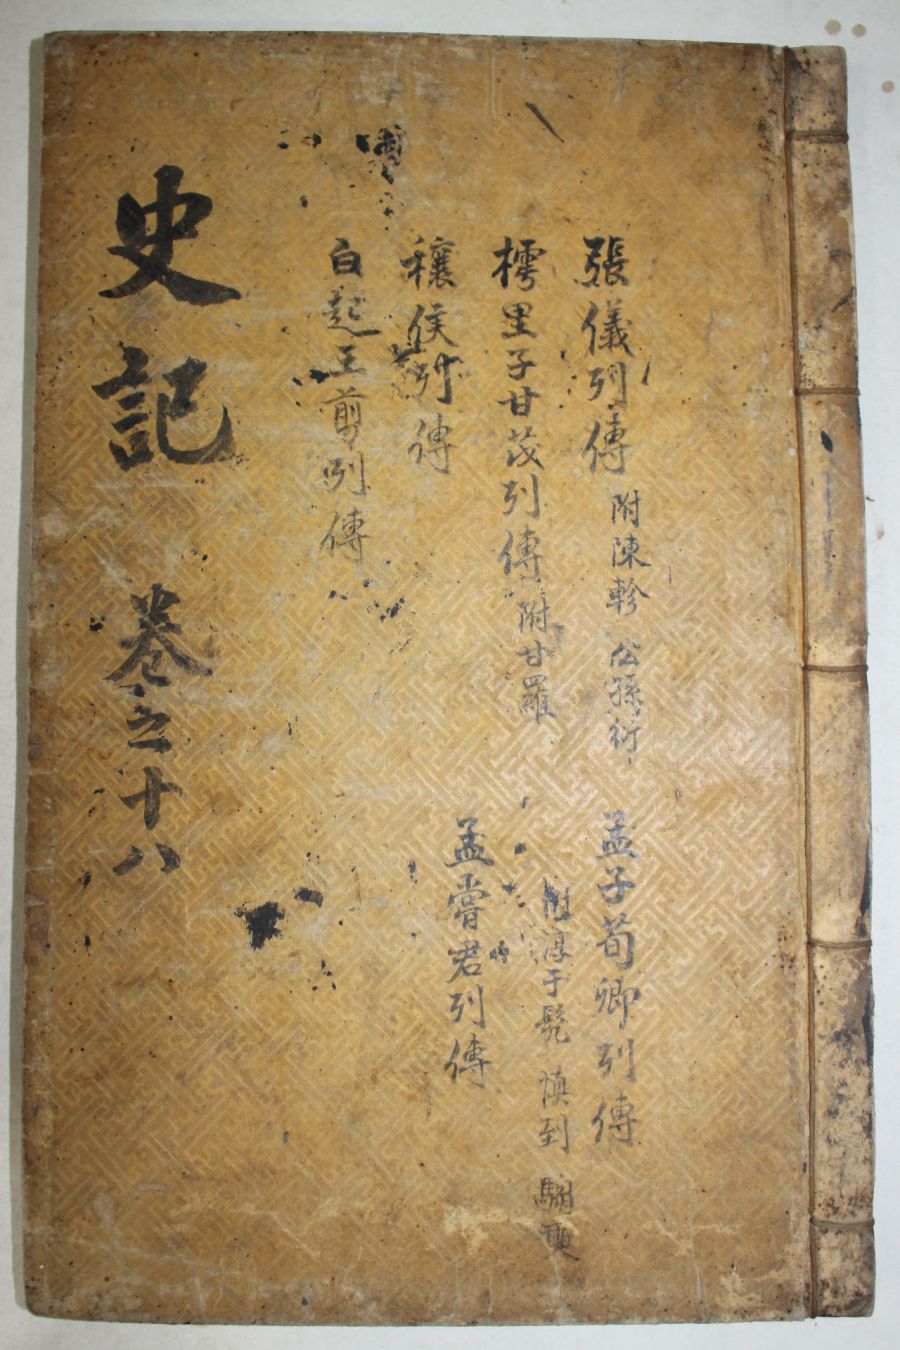 張儀列傳 附陳軫 公孫衍
樗里子甘茂列傳 附甘羅
穰侯列傳
白起王剪列傳
孟子荀卿列傳
附淳于髡 慎到 騶奭
孟嘗君列傳
史記 卷之十八